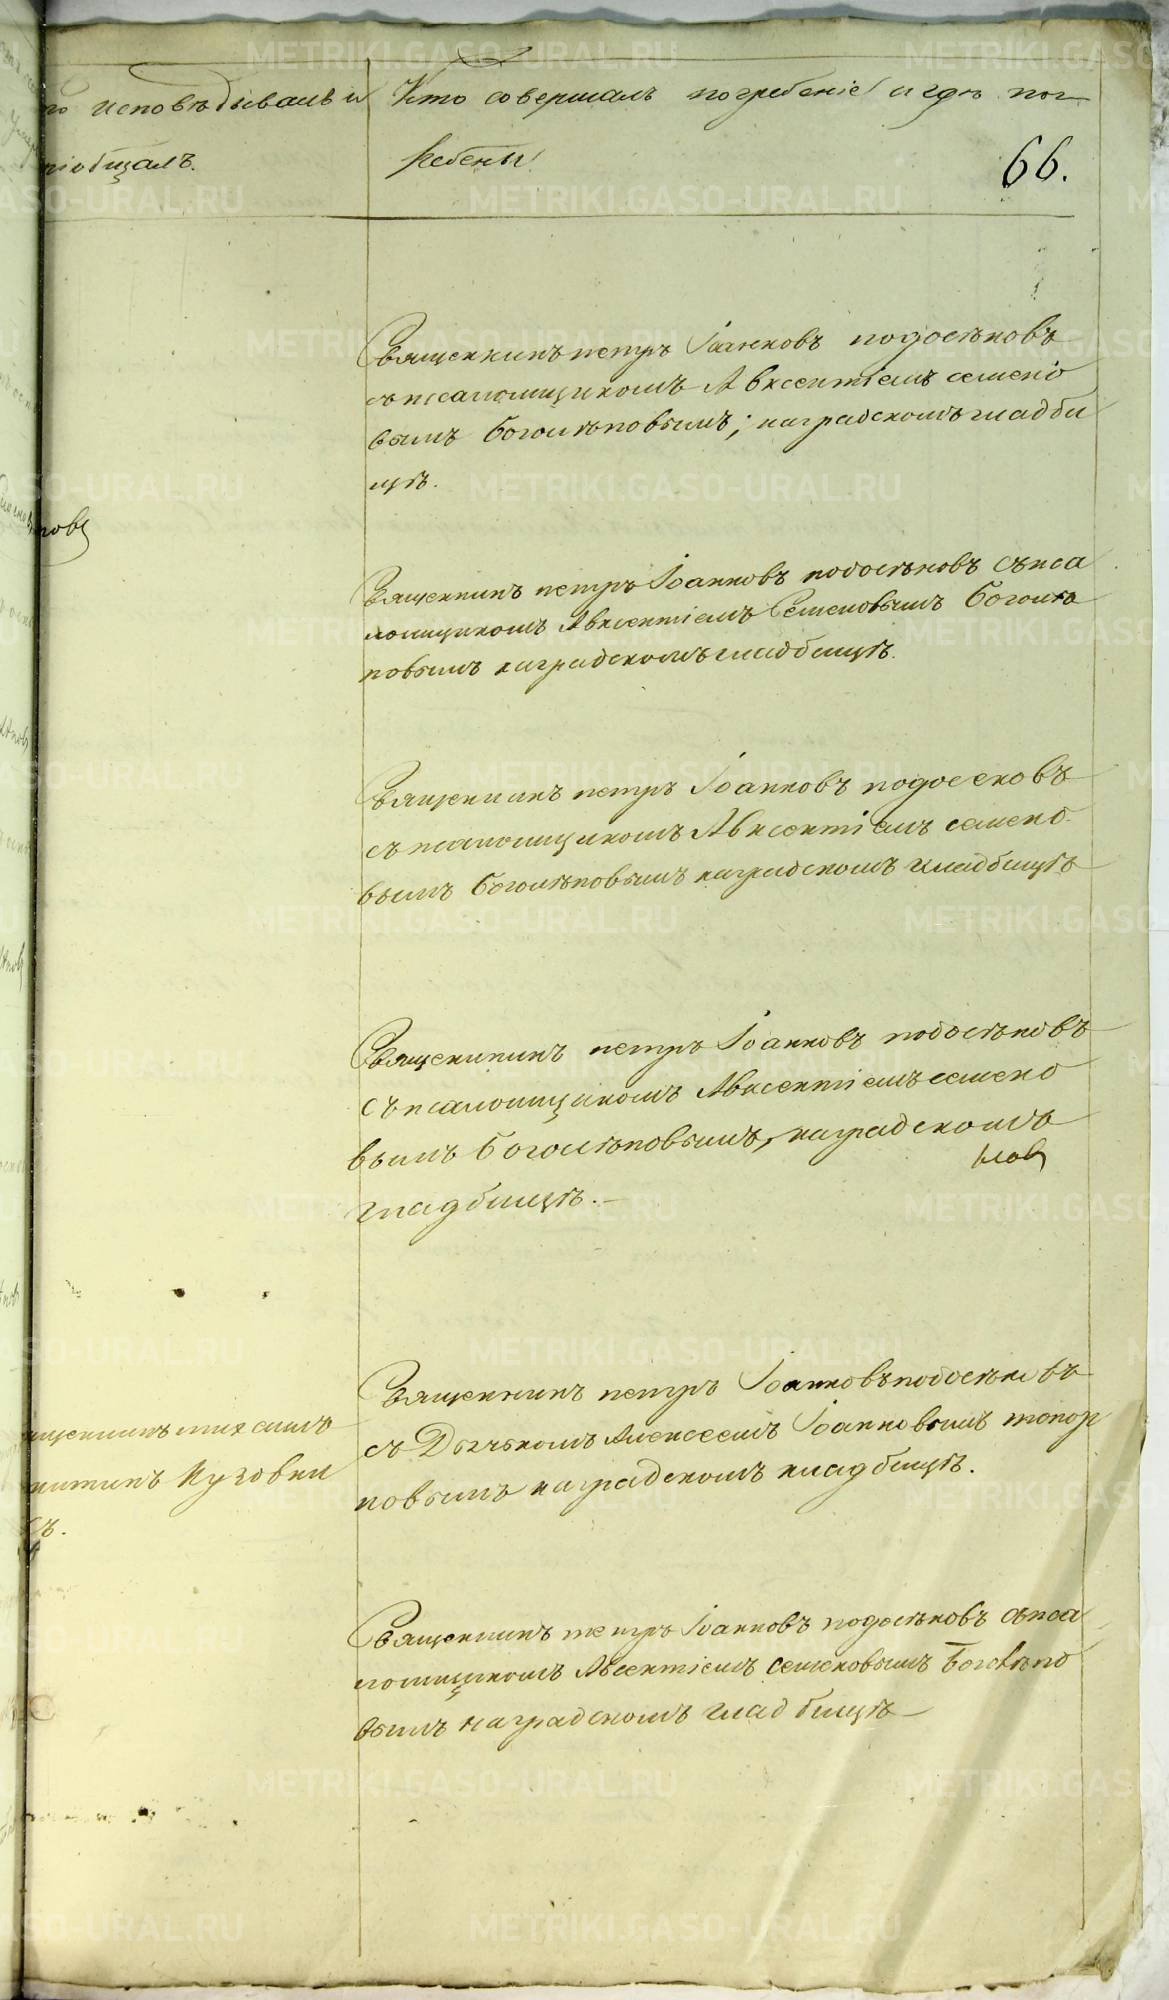 исповѣдывалъ и
Кто совершалъ погребеніе и гдѣ пог
ребены
66.
Священникъ петръ Іоанновъ подосѣновъ
съ псаломщикомъ Авксентіемъ семено
вымъ Боголѣповымъ; на градскомъ гладби
щѣ.
Священникъ петръ Іоанновъ подосѣновъ съ пса
ломщикомъ Авксентіемъ Семеновымъ Боголѣ
повымъ на градскомъ гладбищѣ.
Священникъ петръ Іоанновъ подосеновъ
съ псаломщикомъ Авксентіемъ семено
вымъ Боголѣповымъ на градскомъ гладбищѣ
Священникъ петръ Іоанновъ подосѣновъ
съ псаломщикомъ Авксентіемъ семено
вымъ Боголѣповымъ, на градскомъ
гладбищѣ.
михаилъ
Кузовни
въ.
Священникъ петръ Іоанновъ подосѣновъ
съ Дьячкомъ Алексеемъ Іоанновымъ топор
ковымъ на градскомъ кладбищѣ.
Священникъ петръ Іоанновъ подосѣновъ съ пса
ломщикомъ Авсентіемъ семеновымъ Боголѣпо
вымъ на градскомъ гладбищѣ
METRIKI.GASO-URAL.RU